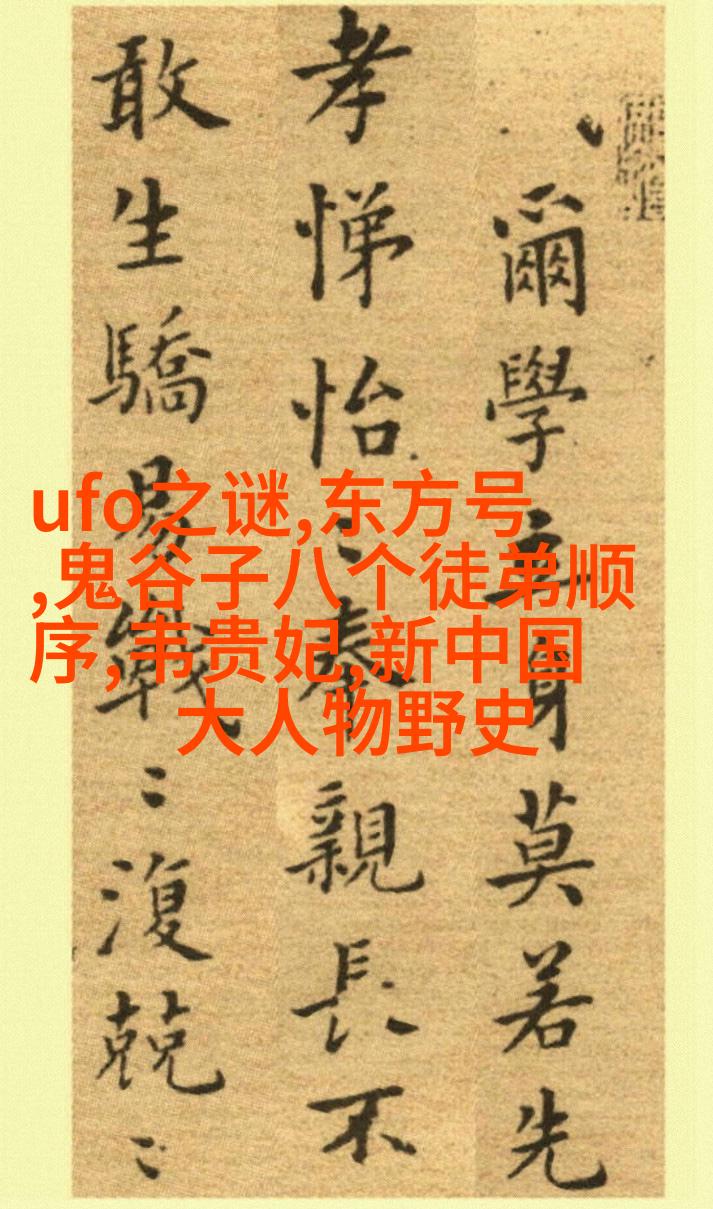 爾學立身莫若先
孝悌怡〻奉親長不
敢生驕易戰〻復兢〻
ufo之谜,东方号
,鬼谷子八个徒弟顺
序,韦贵妃,新中国
大人物野史